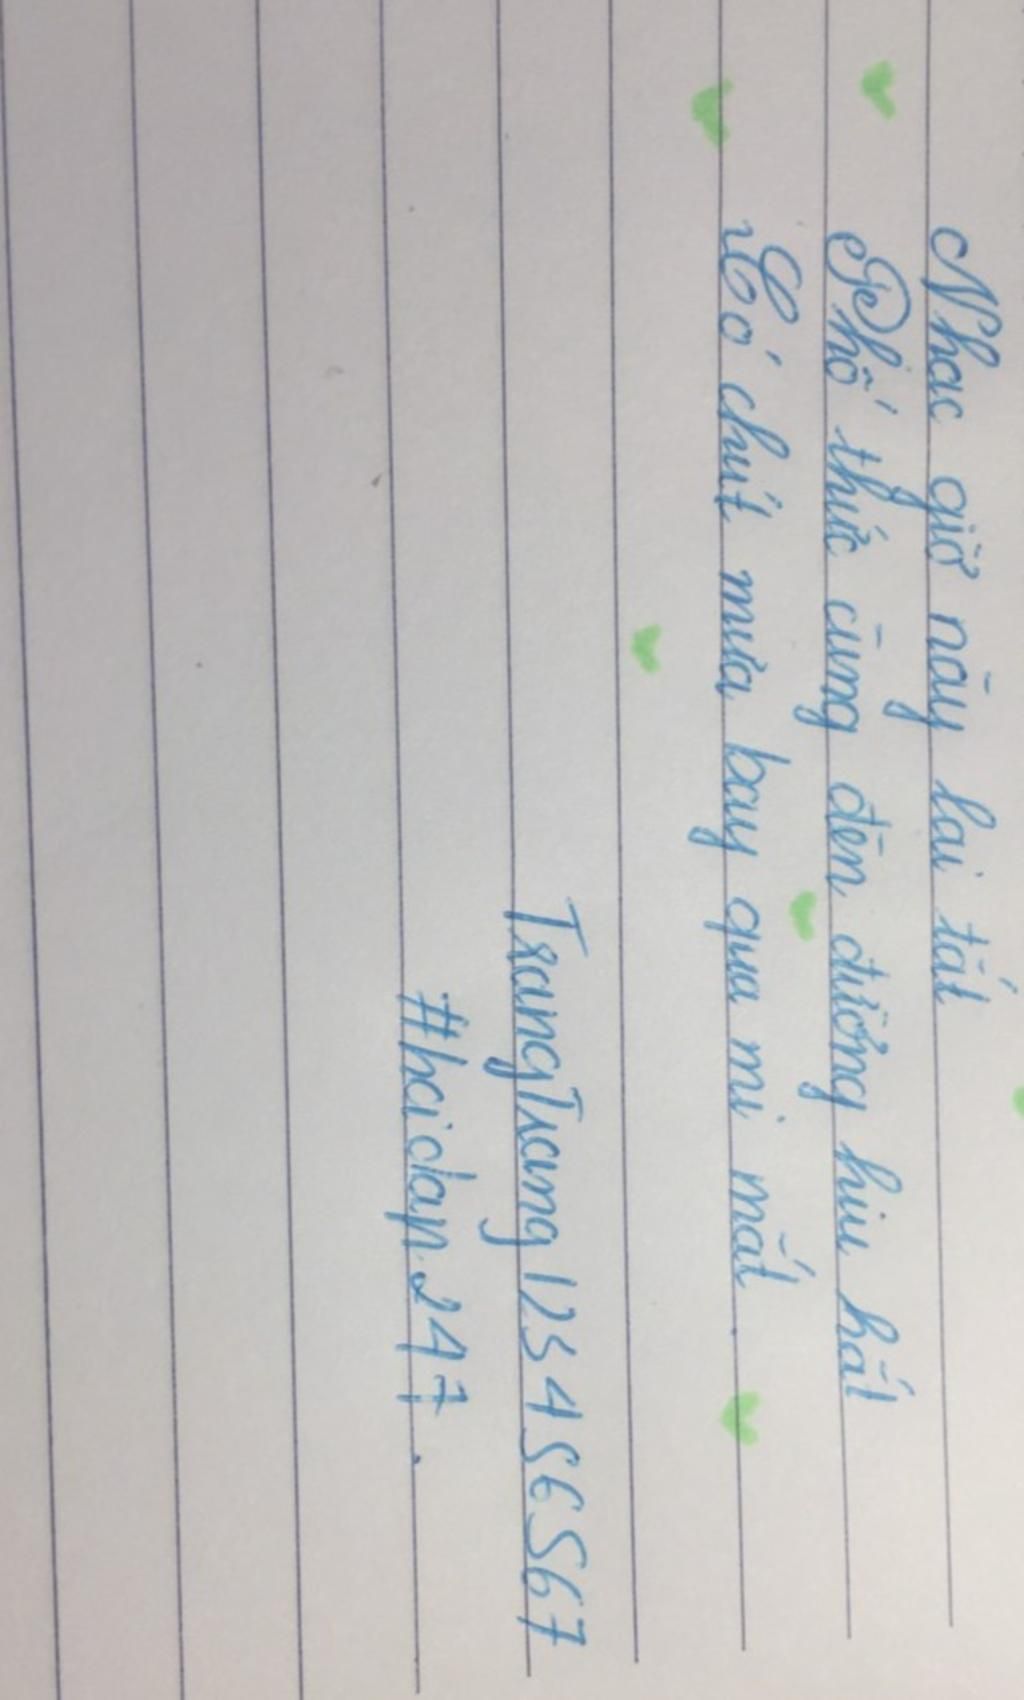 Nhạc giờ này lại tắt
Phố thức cùng đèn đường hiu hắt
Có chút mưa bay qua mi mắt.
TrangTrang123456567
#hoidap247.